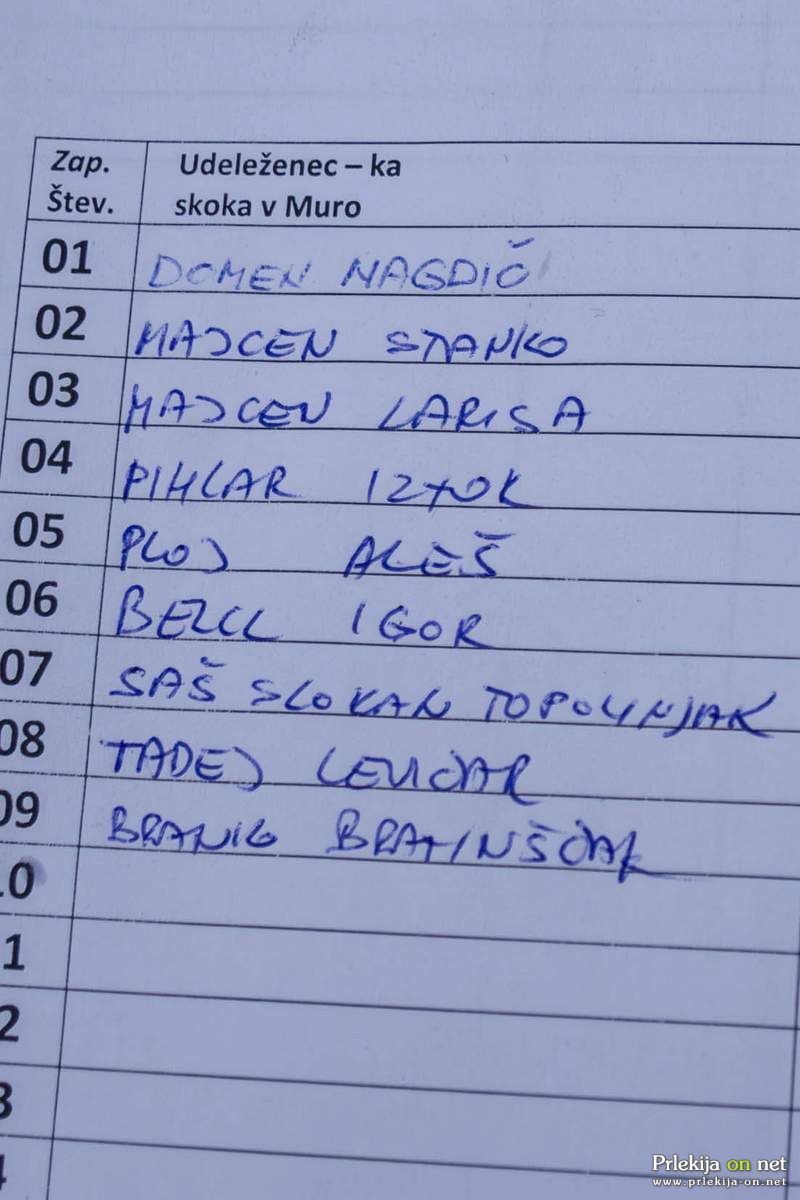 Zap. Udeleženec – ka
Štev. skoka v Muro
01 DOMEN NAGDIČ
02 MAJCEN STANKO
03 MAJCEN LARISA
04 PIHLAR IZTOK
05 PLOJ ALEŠ
06 IGOR
07 SAŠ SLOKAN TOPOLINJAK
08 TADEJ
09
10
1
2
3
4
Prlekija on net
www.prlekija-on.net